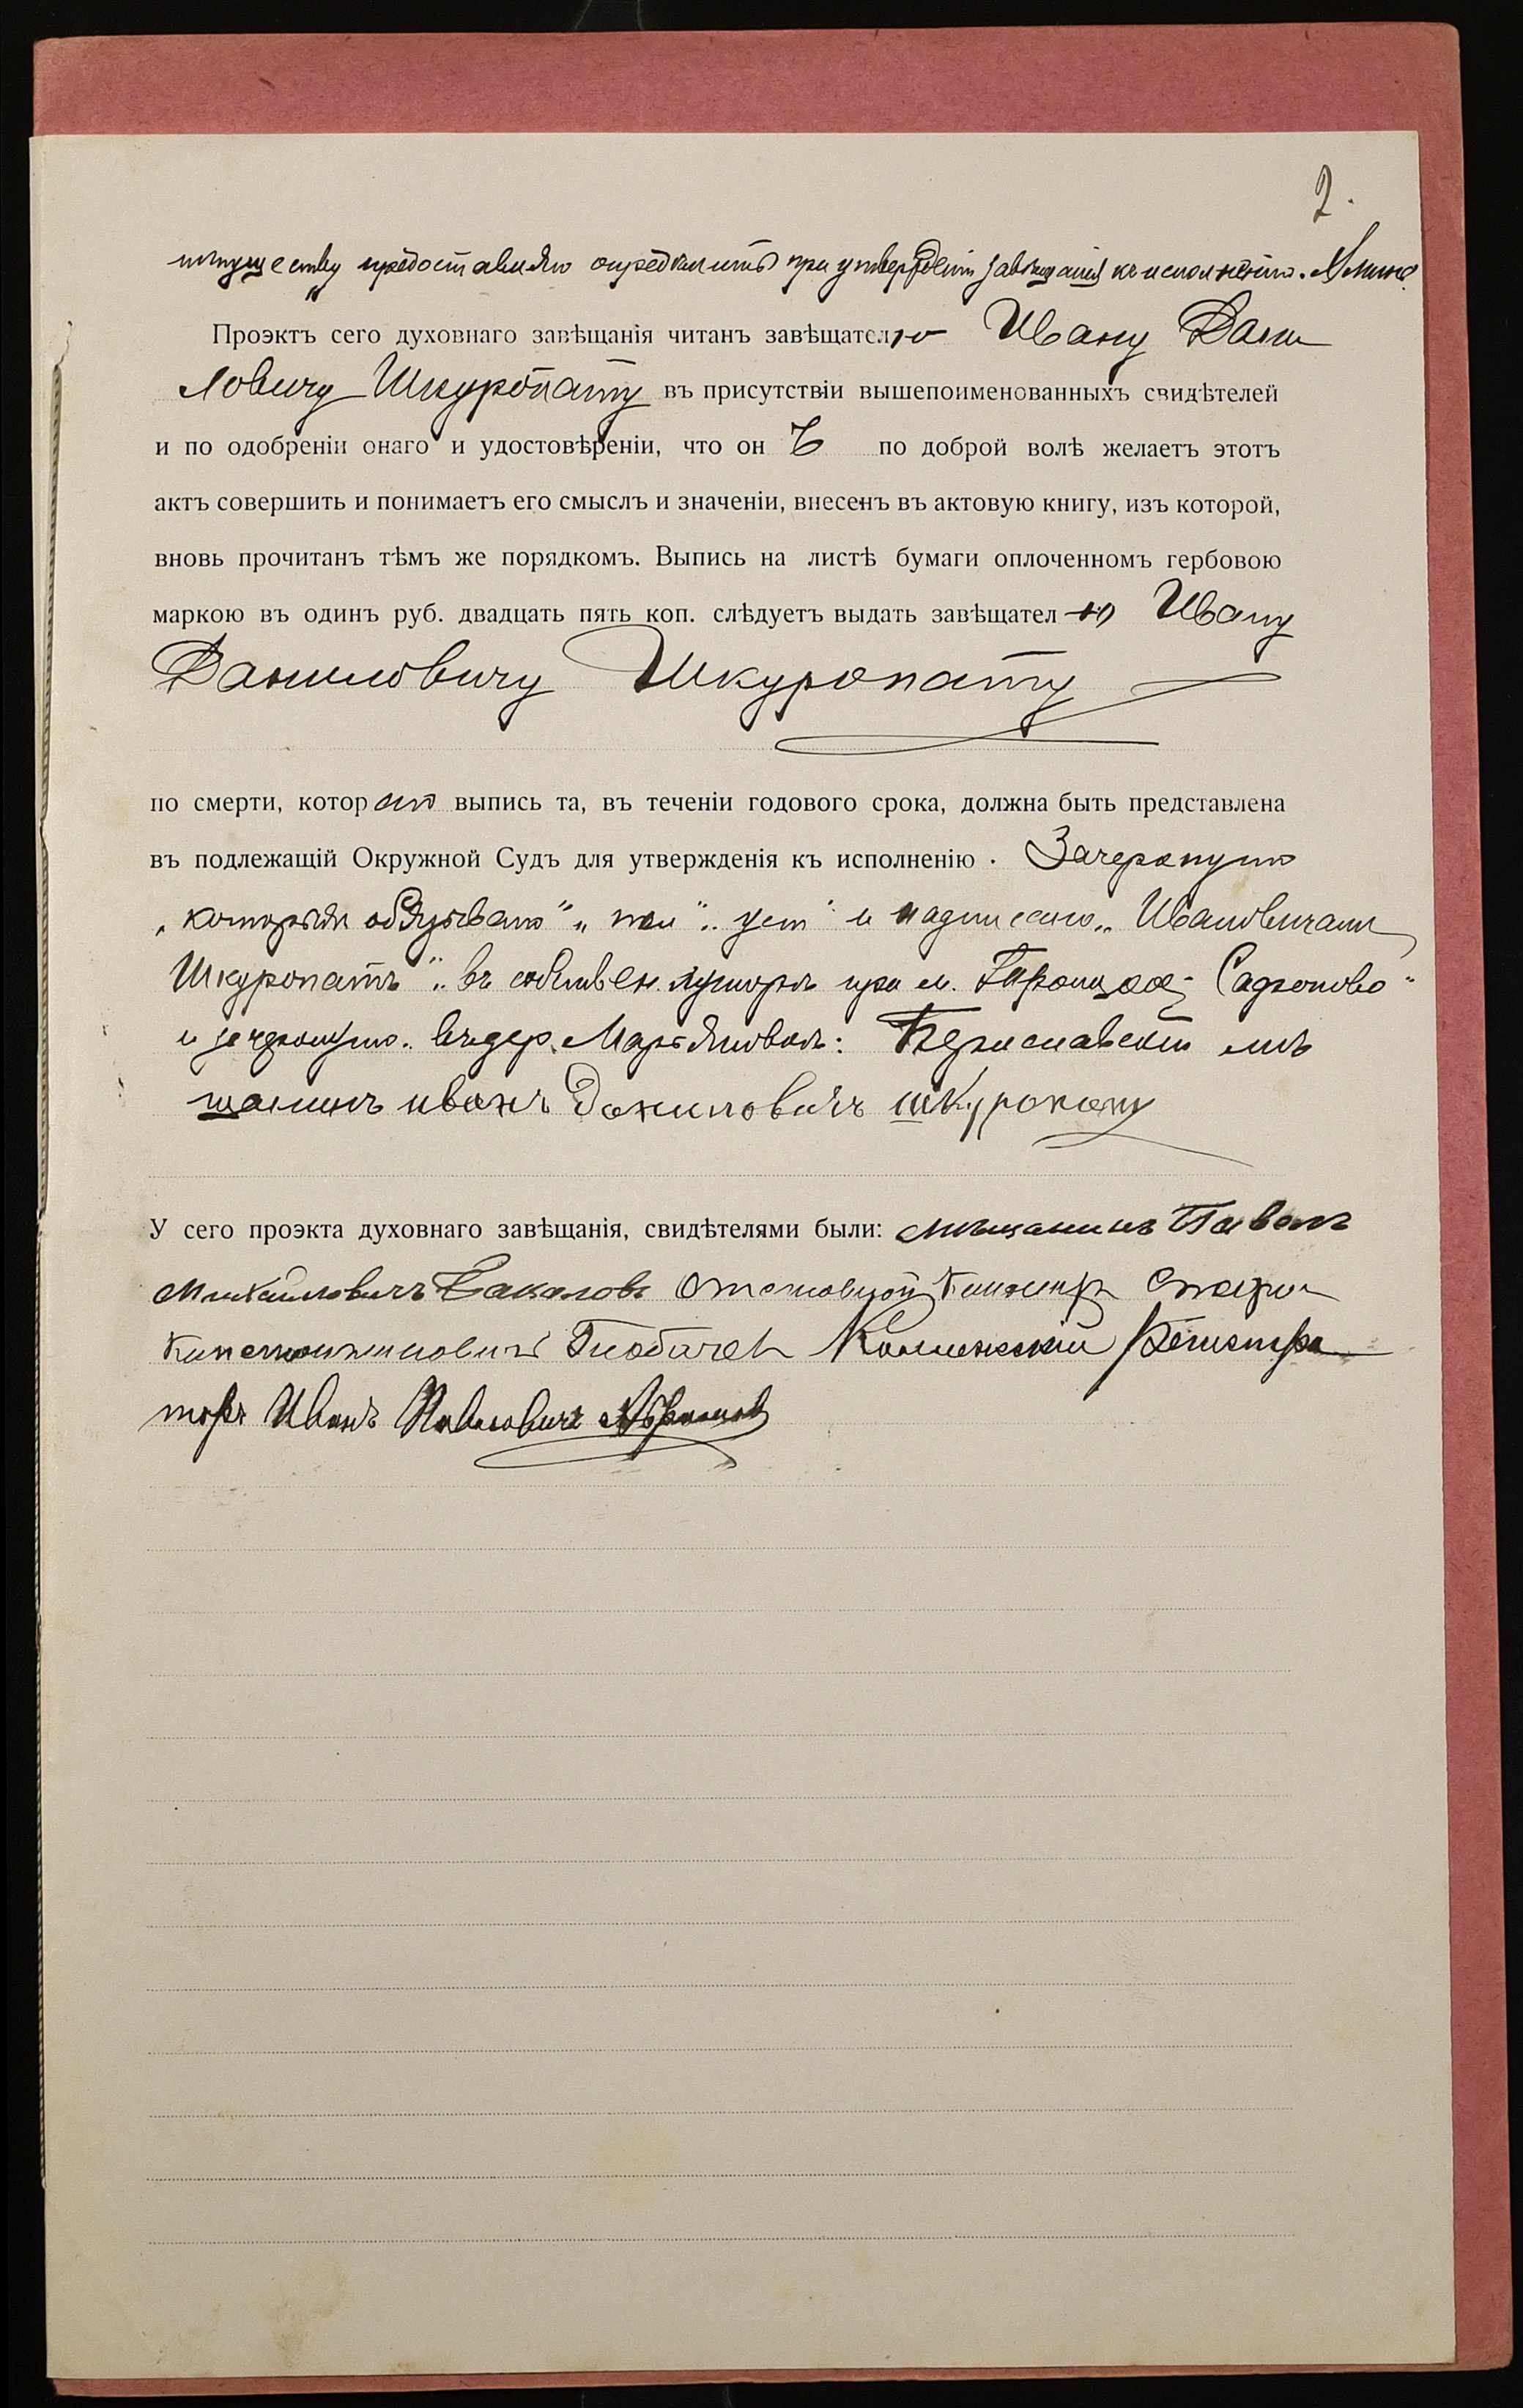 2.
имуществу предоставляю определить при утвержденіи завѣщанія къ исполненію.
Проэктъ сего духовнаго завѣщанія читанъ завѣщателю Ивану Дани
ловичу Шкуропату въ присутствіи вышепоименованныхъ свидѣтелей
и по одобреніи онаго и удостовѣреніи, что онъ по доброй волѣ желаетъ этотъ
актъ совершить и понимаетъ его смыслъ и значеніи, внесенъ въ актовую книгу, изъ которой,
вновь прочитанъ тѣмъ же порядкомъ. Выпись на листѣ бумаги оплоченномъ гербовою
маркою въ одинъ руб. двадцать пять коп. слѣдуетъ выдать завѣщателю Ивану
Даниловичу Шкуропату
по смерти, котораго выпись та, въ теченіи годового срока, должна быть представлена
въ подлежащій Окружной Судъ для утвержденія къ исполненію. Зачеркнуто
„ обязываю" и надписано „Ивановичами
Шкуропатъ" „въ собствен. хуторѣ при м.
и зачеркнуто въ дер. Бериславскій мѣ
щанинъ иванъ Даниловичъ шкуропату
У сего проэкта духовнаго завѣщанія, свидѣтелями были: мѣщанинъ Павелъ
Михайловичъ
Константиновичъ Коллежскій Регистра
торъ Иванъ Павловичъ Абрамовъ